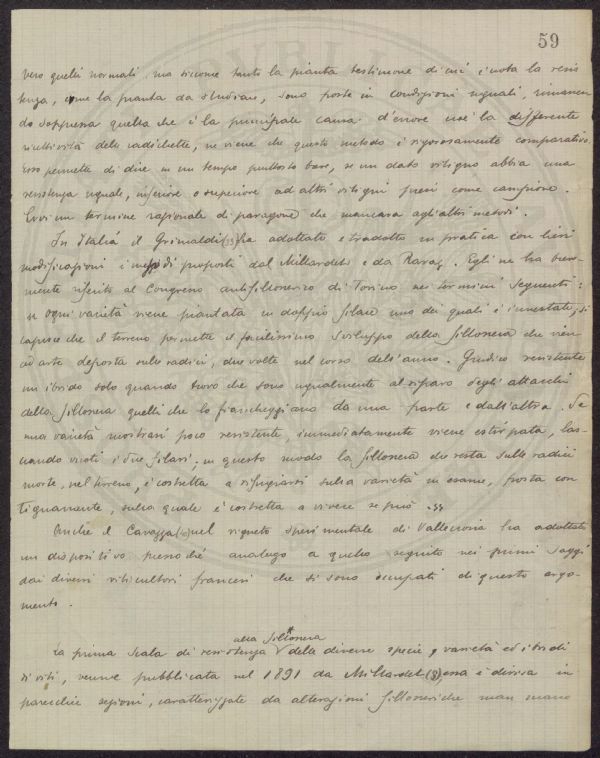 59
vero quelli normali, ma siccome tanto la pianta testimone di cui è nota la resis
tenza, come la pianta da studiare, sono poste in condizioni uguali, rimanen
do soppressa quella che è la principale causa d'errore cioè la differente
ricettività delle radichette, ne viene che questo metodo è rigorosamente comparativo
esso permette di dire in un tempo piuttosto breve, se un dato vitigno abbia una
resistenza uguale, inferiore o superiore ad altri vitigni presi come campione.
Evvi un termine razionale di paragone che mancava agli altri metodi.
In Italia il Grimaldi (39) ha adottato e tradotto in pratica con lievi
modificazioni i metodi proposti dal Millardet e da Ravaz. Egli ne ha breve-
mente riferito al Congresso antifillosserico di Torino nei termini seguenti:
" ogni varietà viene piantata in doppio filare uno dei quali è innestato, si
capisce che il terreno permette il facilissimo sviluppo della fillossera che vien
ad arte deposta sulle radici, due volte nel corso dell'anno. Giudico resistente
un ibrido solo quando trovo che sono ugualmente al riparo degli attacchi
della fillossera quelli che lo fiancheggiano da una parte e dall'altra. Se
una varietà mostrasi poco resistente, immediatamente viene estirpata, las-
ciando vuoti i due filari; in questo modo la fillossera che resta sulle radici
morte, nel terreno, è costretta a rifugiarsi sulla varietà in esame, posta con
tiguamente, sulla quale è costretta a vivere se può. "
Anche il Cavazza nel vigneto sperimentale di ha adottato
un dispositivo pressoché analogo a quello seguito nei primi saggi
dai diversi viticultori francesi che si sono occupati di questo argo-
mento.
alla fillossera
La prima scala di resistenza delle diverse specie, varietà ed ibridi
di viti, venne pubblicata nel 1891 da Millardet (8) essa è divisa in
parecchie sezioni, caratterizzate da alterazioni fillosseriche man mano